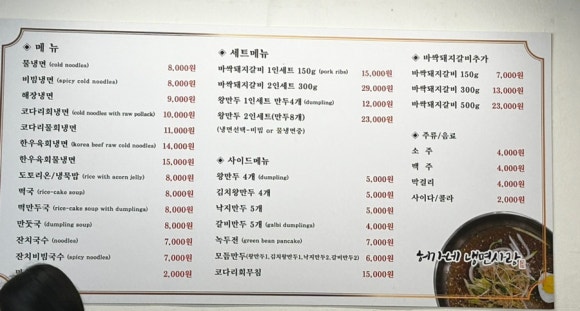 ◈ 메 뉴
물냉면 (cold noodles) 8,000원
비빔냉면 (spicy cold noodles) 8,000원
해장냉면 9,000원
코다리회냉면 (cold noodles with raw pollack) 10,000원
코다리물회냉면 11,000원
한우육회냉면 (korea beef raw cold noodles) 14,000원
한우육회물냉면 15,000원
도토리온/냉묵밥 (rice with acorn jelly) 8,000원
떡국 (rice-cake soup) 7,000원
떡만두국 (rice-cake soup with dumplings) 7,000원
만둣국 (dumpling soup) 8,000원
잔치국수 (noodles) 7,000원
잔치비빔국수 (spicy noodles) 7,000원
2,000원
◈ 세트메뉴
바싹돼지갈비 1인세트 150g (pork ribs) 15,000원
바싹돼지갈비 2인세트 300g 29,000원
왕만두 1인세트 만두4개 (dumpling) 12,000원
왕만두 2인세트(만두8개) 23,000원
(냉면선택-비빔 or 물냉면중)
◈ 사이드메뉴
왕만두 4개 (dumpling) 5,000원
김치왕만두 4개 5,000원
낙지만두 5개 5,000원
갈비만두 5개 (galbi dumplings) 4,000원
녹두전 (green bean pancake) 7,000원
모듬만두(왕만두1,김치왕만두1,낙지만두2,갈비만두2) 6,000원
코다리회무침 15,000원
◈ 바싹돼지갈비추가
바싹돼지갈비 150g 7,000원
바싹돼지갈비 300g 13,000원
바싹돼지갈비 500g 23,000원
◈ 주류/음료
소 주 4,000원
맥 주 4,000원
막걸리 4,000원
사이다/콜라 2,000원
허가네 냉면사랑